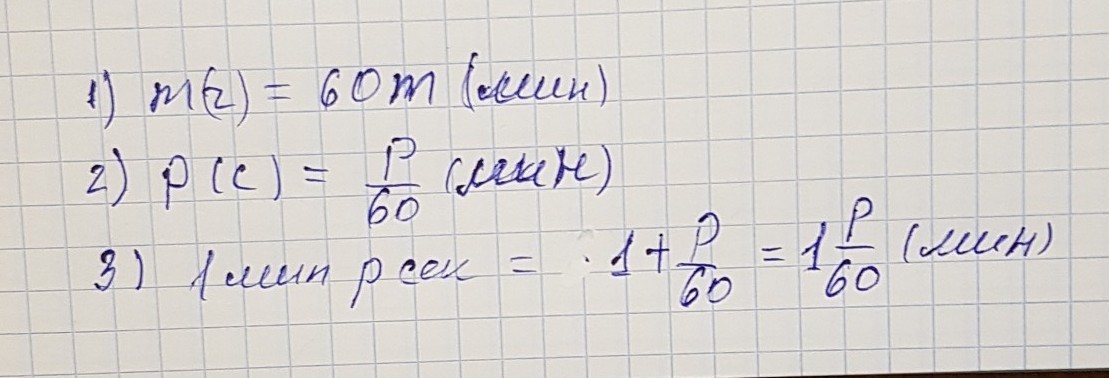 1) m(г) = 60m (мин)
2) p(с) = p/60 (мин)
3) 1 мин p сек = 1 + p/60 = 1 p/60 (мин)